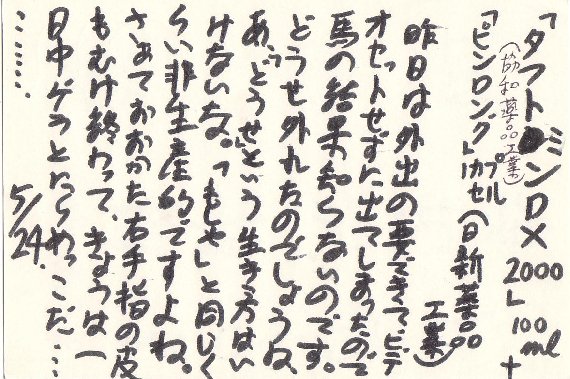 「タフトミンDX2000」100ml+
(協和薬品工業)
「ピンロング」カプセル(日新薬品
工業)
昨日は外出の要できて、ビデ
オセットせずに出てしまったので
馬の結果知らないのです。
どうせ外れたのでしょうね、
あ、「どうせ」という生き方はい
けないな。「もしや」と同じく
らい非生産的ですよね。
さあておおかた右手指の皮
もむけ終わって、きょうは一
日中ゲラとにらめっこだ……
…………。
5/24.